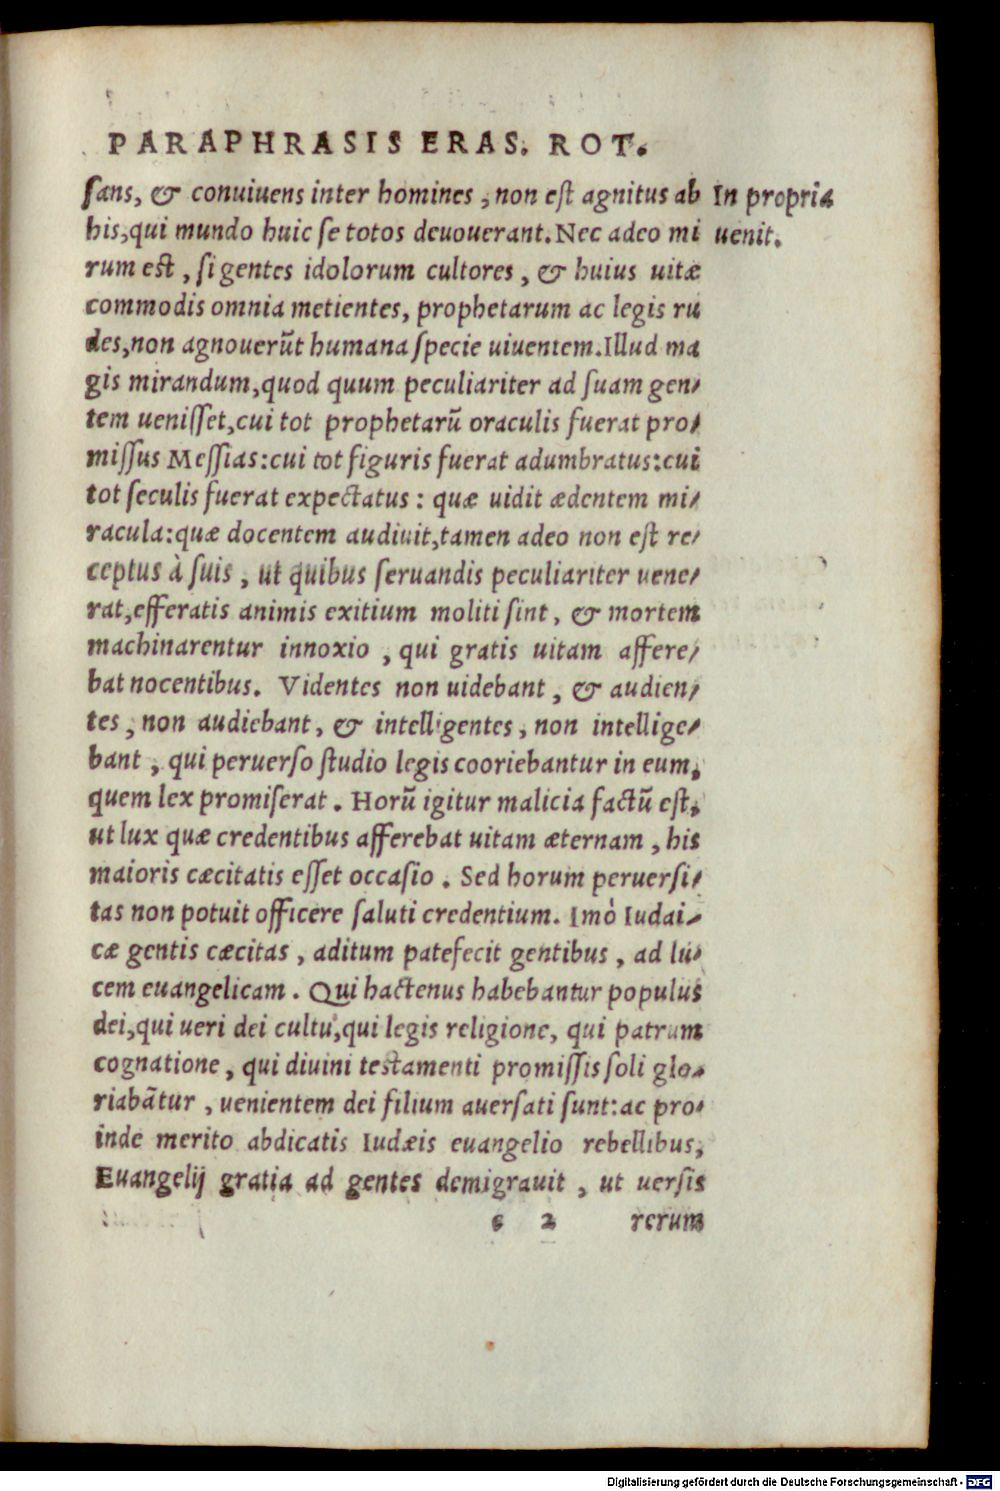 PARAPHRASIS ERAS. ROT.
ſans, & conuiuens inter homines, non eſt agnitus ab
his, qui mundo huic ſe totos deuouerant. Nec adeo mi
rum eſt, ſi gentes idolorum cultores, & huius uitæ
commodis omnia metientes, prophetarum ac legis ru
des, non agnouerūt humana ſpecie uiuentem. Illud ma
gis mirandum, quod quum peculiariter ad ſuam gen/
tem ueniſſet, cui tot prophetarū oraculis fuerat pro/
miſſus Meſſias: cui tot figuris fuerat adumbratus: cui
tot ſeculis fuerat expectatus: quæ uidit ædentem mi/
racula: quæ docentem audiuit, tamen adeo non eſt re/
ceptus à ſuis, ut quibus ſeruandis peculiariter uene/
rat, efferatis animis exitium moliti ſint, & mortem
machinarentur innoxio, qui gratis uitam affere/
bat nocentibus. Videntes non uidebant, & audien/
tes, non audiebant, & intelligentes, non intellige/
bant, qui peruerſo ſtudio legis cooriebantur in eum,
quem lex promiſerat. Horū igitur malicia factū eſt,
ut lux quæ credentibus afferebat uitam æternam, his
maioris cæcitatis eſſet occaſio. Sed horum peruerſi/
tas non potuit officere ſaluti credentium. Imò Iudai/
cæ gentis cæcitas, aditum patefecit gentibus, ad lu/
cem euangelicam. Qui hactenus habebantur populus
dei, qui ueri dei cultu, qui legis religione, qui patrum
cognatione, qui diuini teſtamenti promiſſis ſoli glo/
riabātur, uenientem dei filium auerſati ſunt: ac pro/
inde merito abdicatis Iudæis euangelio rebellibus,
Euangelij gratia ad gentes demigrauit, ut uerſis
c 2 rerum
In propria
uenit.
Digitalisierung gefördert durch die Deutsche Forschungsgemeinschaft - DFG